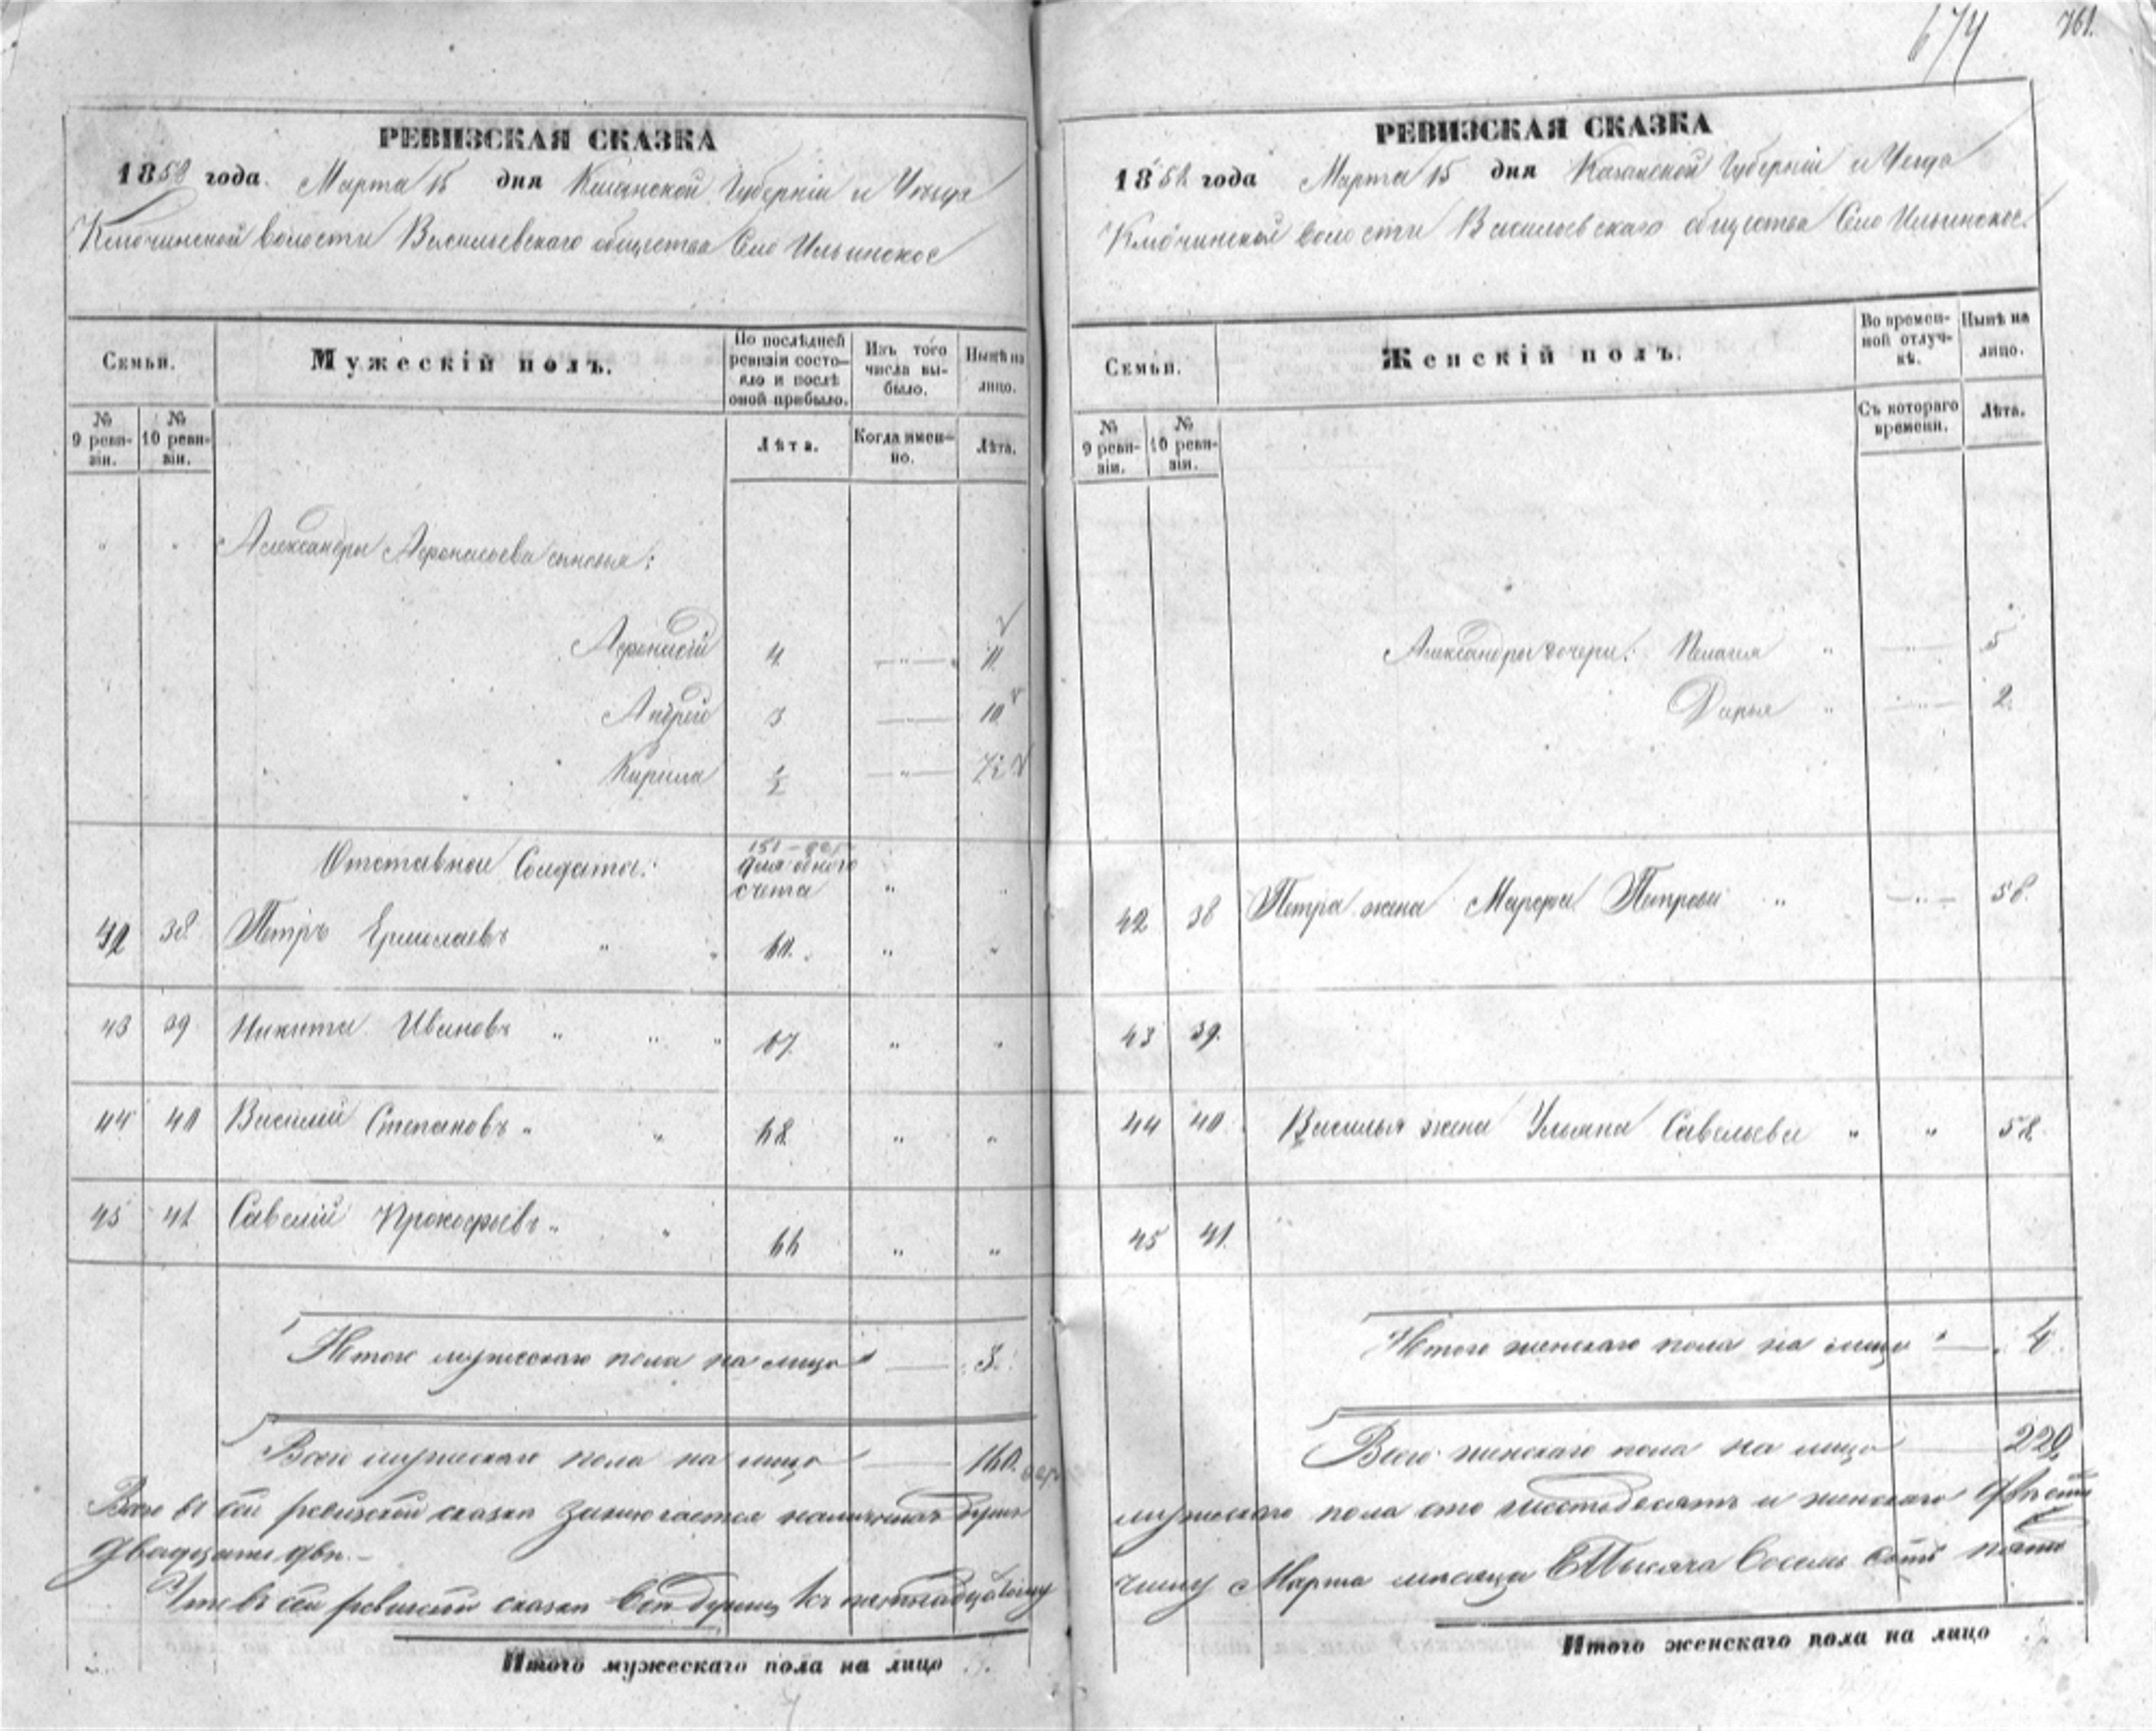 674 761.
РЕВИЗСКАЯ СКАЗКА
1858 года Марта 15 дня Казанской Губерніи и Уѣзда
Ключинской волости Васильевскаго общества Село Ильинское
Семьи.
Мужескій полъ.
По послѣдней ревизіи состояло и послѣ оной прибыло.
Изъ того числа выбыло.
Нынѣ на лицо.
№ 9 ревизіи.
№ 10 ревизіи.
Лѣта.
Когда именно.
Лѣта.
Александры Афонасьева сыновья:
Афонасій 4 11
Андрей 3 10
Кирила ½ 7½
Отставной Солдаты:
для одного счета
42 38 Петръ Ермолаевъ 60.
43 39 Никита Ивановъ 67
44 40 Василій Степановъ 68
45 41 Савелій Прокофьевъ 66
Итого мужескаго пола на лицо 3.
Всего мужескаго пола на лицо 160.
Всего въ сей ревизской сказки заключается наличныхъ душъ
двадцать двѣ.
Что въ сей ревизской сказки всѣ души къ пятнадцатому
Итого мужескаго пола на лицо
РЕВИЗСКАЯ СКАЗКА
1858 года Марта 15 дня Казанской Губерніи и Уѣзда
Ключинской волости Васильевскаго общества Село Ильинское
Семьи.
Женскій полъ.
Во временной отлучкѣ.
Нынѣ на лицо.
№ 9 ревизіи.
№ 10 ревизіи.
Съ котораго времени.
Лѣта.
Александры дочери: Пелагея 5
Дарья 2.
42 38 Петра жена Марфа Петрова 58.
43 39.
44 40 Василья жена Ульяна Савельева 58
45 41.
Итого женскаго пола на лицо 4
Всего женскаго пола на лицо 220
мужескаго пола сто шестьдесятъ и женскаго двѣсти
числу Марта мѣсяца Тысяча восемь сотъ пять
Итого женскаго пола на лицо